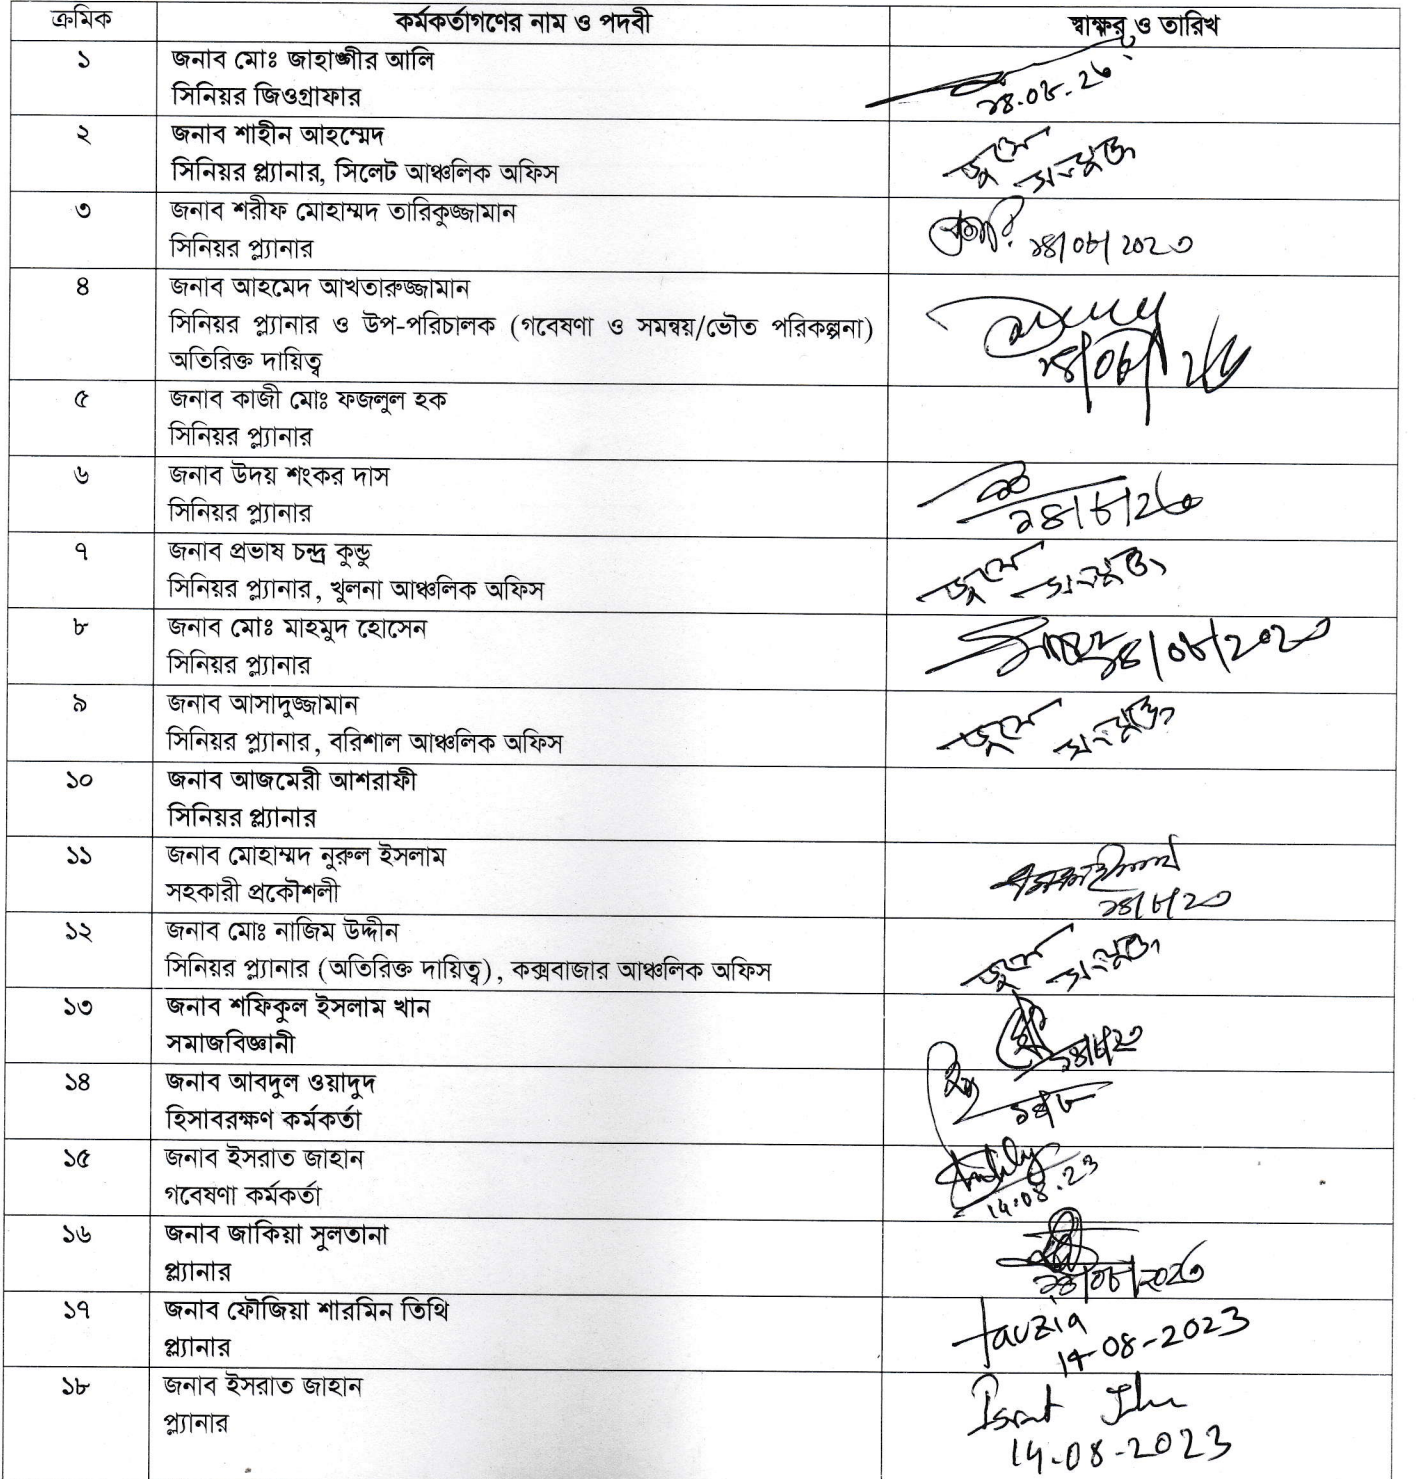 ক্রমিক কর্মকর্তাগণের নাম ও পদবী স্বাক্ষর ও তারিখ
১ জনাব মোঃ জাহাঙ্গীর আলি
সিনিয়র জিওগ্রাফার
১৪.০৮.২৩
২ জনাব শাহীন আহম্মেদ
সিনিয়র প্ল্যানার, সিলেট আঞ্চলিক অফিস
জুমে সংযুক্ত
৩ জনাব শরীফ মোহাম্মদ তারিকুজ্জামান
সিনিয়র প্ল্যানার
১৪/০৮/২০২৩
৪ জনাব আহমেদ আখতারুজ্জামান
সিনিয়র প্ল্যানার ও উপ-পরিচালক (গবেষণা ও সমন্বয়/ভৌত পরিকল্পনা)
অতিরিক্ত দায়িত্ব
১৪/০৮/২৩
৫ জনাব কাজী মোঃ ফজলুল হক
সিনিয়র প্ল্যানার
৬ জনাব উদয় শংকর দাস
সিনিয়র প্ল্যানার
১৪/৮/২৩
৭ জনাব প্রভাষ চন্দ্র কুন্ডু
সিনিয়র প্ল্যানার, খুলনা আঞ্চলিক অফিস
জুমে সংযুক্ত
৮ জনাব মোঃ মাহমুদ হোসেন
সিনিয়র প্ল্যানার
১৪/০৮/২০২৩
৯ জনাব আসাদুজ্জামান
সিনিয়র প্ল্যানার, বরিশাল আঞ্চলিক অফিস
জুমে সংযুক্ত
১০ জনাব আজমেরী আশরাফী
সিনিয়র প্ল্যানার
১১ জনাব মোহাম্মদ নুরুল ইসলাম
সহকারী প্রকৌশলী
১৪/৮/২৩
১২ জনাব মোঃ নাজিম উদ্দীন
সিনিয়র প্ল্যানার (অতিরিক্ত দায়িত্ব), কক্সবাজার আঞ্চলিক অফিস
জুমে সংযুক্ত
১৩ জনাব শফিকুল ইসলাম খান
সমাজবিজ্ঞানী
১৪/৮/২৩
১৪ জনাব আবদুল ওয়াদুদ
হিসাবরক্ষণ কর্মকর্তা
১৪/৮
১৫ জনাব ইসরাত জাহান
গবেষণা কর্মকর্তা
14.08.23
১৬ জনাব জাকিয়া সুলতানা
প্ল্যানার
১৪/০৮/২০২৩
১৭ জনাব ফৌজিয়া শারমিন তিথি
প্ল্যানার
fauzia
14-08-2023
১৮ জনাব ইসরাত জাহান
প্ল্যানার
Israt
14.08-2023